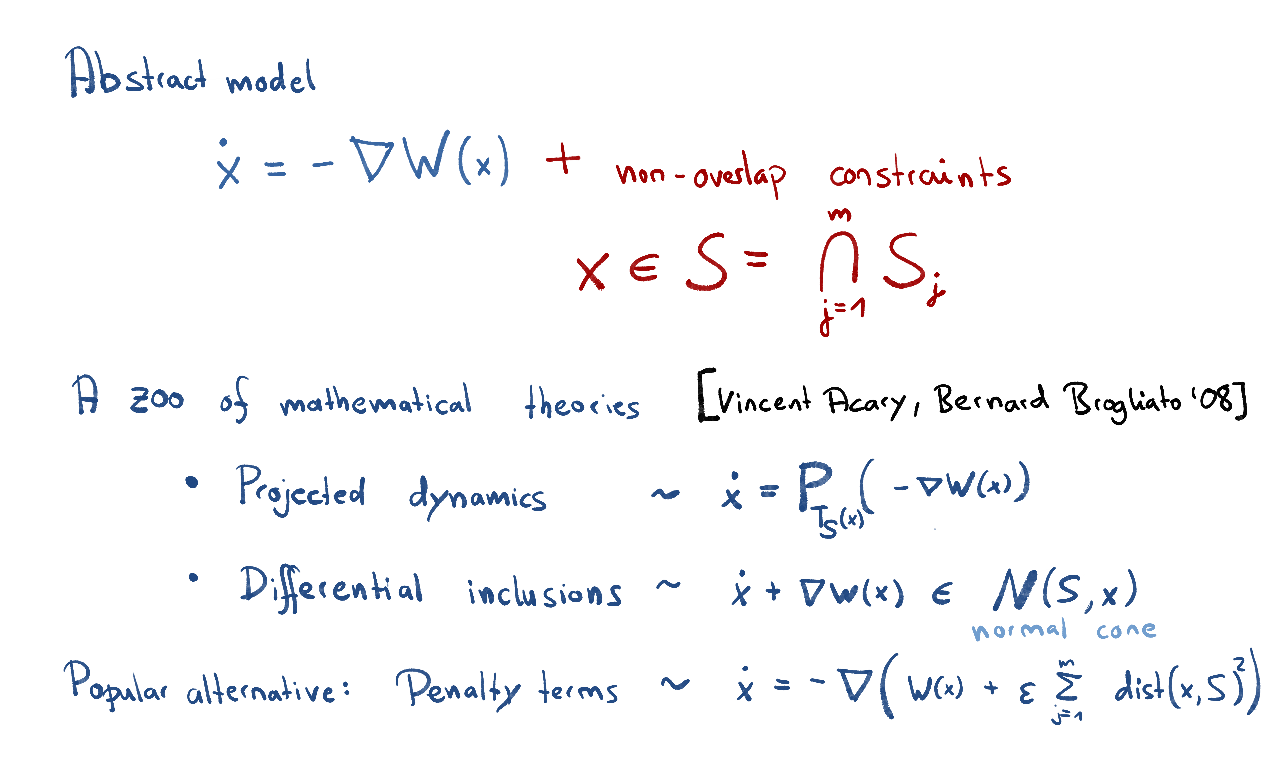 Abstract model
ẋ = - ∇W(x) + non-overlap constraints
x ∈ S = ⋂_{j=1}^{m} S_j
A zoo of mathematical theories [Vincent Acary, Bernard Brogliato '08]
• Projected dynamics ~ ẋ = P_{T_S(x)}(-∇W(x))
• Differential inclusions ~ ẋ + ∇W(x) ∈ N(S,x)
normal cone
Popular alternative: Penalty terms ~ ẋ = -∇(W(x) + ε ∑_{j=1}^{m} dist(x,S)²)